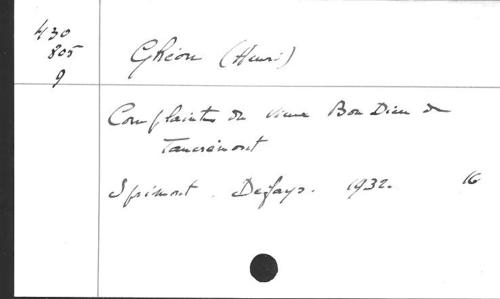 430
805
9
Ghéon (Henri)
Complainte du vieux Bon Dieu de
Tancrémont
Sprimont. Dejays. 1932. 16